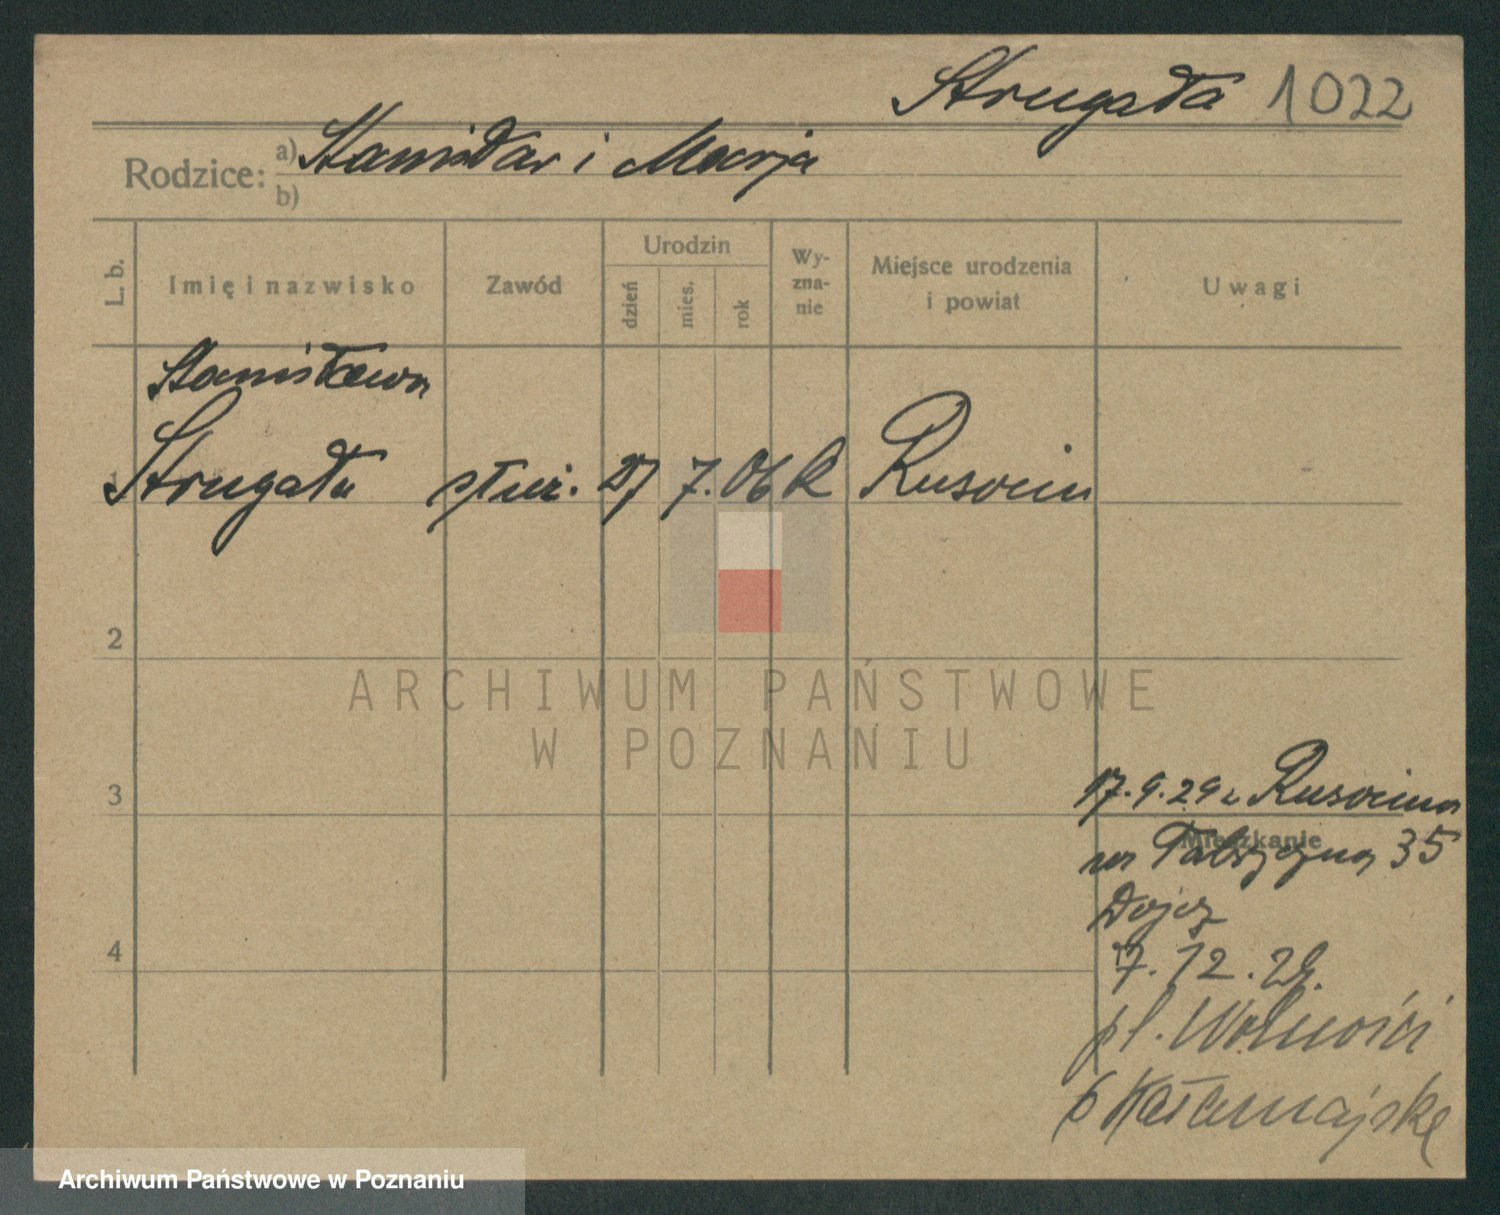 Strugała 1022
Rodzice: a) Stanisław i Marja
b)
L. b. Imię i nazwisko Zawód Urodzin dzień mies. rok Wy-zna-nie Miejsce urodzenia i powiat Uwagi
Stanisława
1 Strugała służ. 27 7. 06 k Rusocin
2
ARCHIWUM PAŃSTWOWE
W POZNANIU
3
17.9.29 z Rusocina
Mieszkanie
na 35
4
7.12.29.
pl. Wolności
6
Archiwum Państwowe w Poznaniu